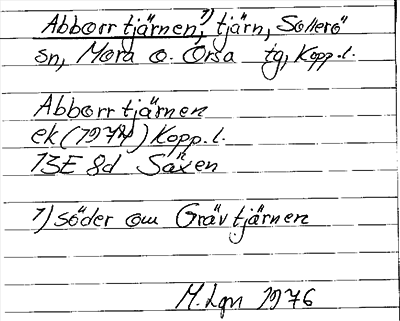 Abborrtjärnen,¹) tjärn, Sollerö
sn, Mora o. Orsa tg, Kopp. l.
Abborrtjärnen
ek (1974) Kopp. l.
13E 8d Säxen
¹) söder om Grävtjärnen
M. Lgn 1976